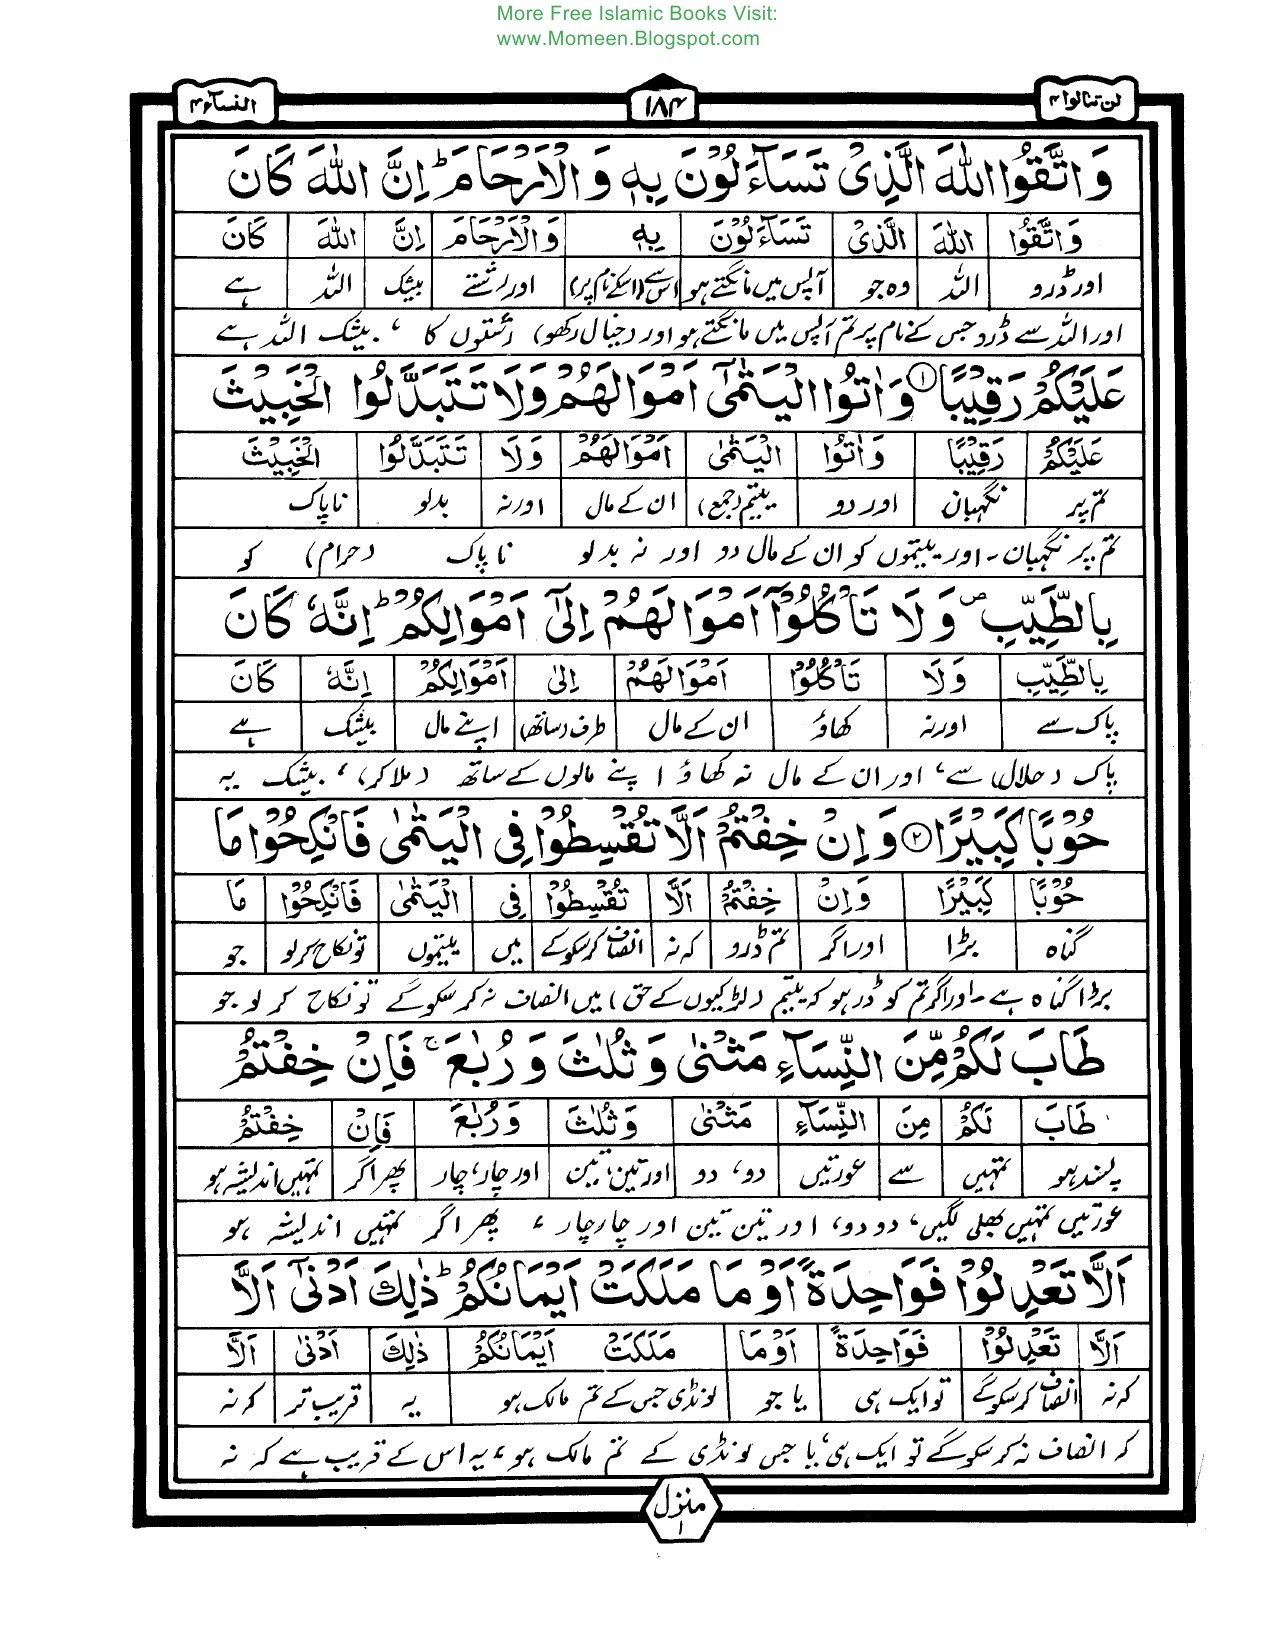 More Free Islamic Books Visit:
www.Momeen.Blogspot.com
لن تنالوا ۴ ۱۸۴ النسآء ۴
وَاتَّقُوا اللّٰهَ الَّذِیْ تَسَآءَلُوْنَ بِهٖ وَالْاَرْحَامَ ؕ اِنَّ اللّٰهَ كَانَ
وَاتَّقُوا اللّٰهَ الَّذِیْ تَسَآءَلُوْنَ بِهٖ وَالْاَرْحَامَ اِنَّ اللّٰهَ كَانَ
اور ڈرو اللہ وہ جو آپس میں مانگتے ہو اس سے (اسکے نام پر) اور رشتے بیشک اللہ ہے
اور اللہ سے ڈرو جس کے نام پر تم آپس میں مانگتے ہو اور (خیال رکھو) رشتوں کا ، بیشک اللہ ہے
عَلَیْكُمْ رَقِیْبًا ۱ وَاٰتُوا الْیَتٰمٰۤی اَمْوَالَهُمْ وَلَا تَتَبَدَّلُوا الْخَبِیْثَ
عَلَیْكُمْ رَقِیْبًا وَاٰتُوا الْیَتٰمٰۤی اَمْوَالَهُمْ وَلَا تَتَبَدَّلُوا الْخَبِیْثَ
تم پر نگہبان اور دو یتیم (جمع) ان کے مال اور نہ بدلو ناپاک
تم پر نگہبان - اور یتیموں کو ان کے مال دو اور نہ بدلو ناپاک (حرام) کو
بِالطَّیِّبِ ص وَلَا تَاْكُلُوْۤا اَمْوَالَهُمْ اِلٰۤی اَمْوَالِكُمْ ؕ اِنَّهٗ كَانَ
بِالطَّیِّبِ وَلَا تَاْكُلُوْۤا اَمْوَالَهُمْ اِلٰی اَمْوَالِكُمْ اِنَّهٗ كَانَ
پاک سے اور نہ کھاؤ ان کے مال طرف (ساتھ) اپنے مال بیشک ہے
پاک (حلال) سے، اور ان کے مال نہ کھاؤ اپنے مالوں کے ساتھ (ملا کر) ، بیشک یہ
حُوْبًا كَبِیْرًا ۲ وَاِنْ خِفْتُمْ اَلَّا تُقْسِطُوْا فِی الْیَتٰمٰی فَانْكِحُوْا مَا
حُوْبًا كَبِیْرًا وَاِنْ خِفْتُمْ اَلَّا تُقْسِطُوْا فِی الْیَتٰمٰی فَانْكِحُوْا مَا
گناہ بڑا اور اگر تم ڈرو کہ نہ انصاف کرسکو گے میں یتیموں تو نکاح کرلو جو
بڑا گناہ ہے - اور اگر تم کو ڈر ہو کہ یتیم (لڑکیوں کے حق) میں انصاف نہ کرسکو گے تو نکاح کر لو جو
طَابَ لَكُمْ مِّنَ النِّسَآءِ مَثْنٰی وَثُلٰثَ وَرُبٰعَ ۚ فَاِنْ خِفْتُمْ
طَابَ لَكُمْ مِنَ النِّسَآءِ مَثْنٰی وَثُلٰثَ وَرُبٰعَ فَاِنْ خِفْتُمْ
پسند ہو تمہیں سے عورتیں دو، دو اور تین، تین اور چار، چار پھر اگر تمہیں اندیشہ ہو
عورتیں تمہیں بھلی لگیں، دو دو، اور تین تین اور چار چار ، پھر اگر تمہیں اندیشہ ہو
اَلَّا تَعْدِلُوْا فَوَاحِدَةً اَوْ مَا مَلَكَتْ اَیْمَانُكُمْ ؕ ذٰلِكَ اَدْنٰۤی اَلَّا
اَلَّا تَعْدِلُوْا فَوَاحِدَةً اَوْ مَا مَلَكَتْ اَیْمَانُكُمْ ذٰلِكَ اَدْنٰی اَلَّا
کہ نہ انصاف کرسکو گے تو ایک ہی یا جو لونڈی جس کے تم مالک ہو یہ قریب تر کہ نہ
کہ انصاف نہ کرسکو گے تو ایک ہی، یا جس لونڈی کے تم مالک ہو، یہ اس کے قریب ہے کہ نہ
منزل ۱